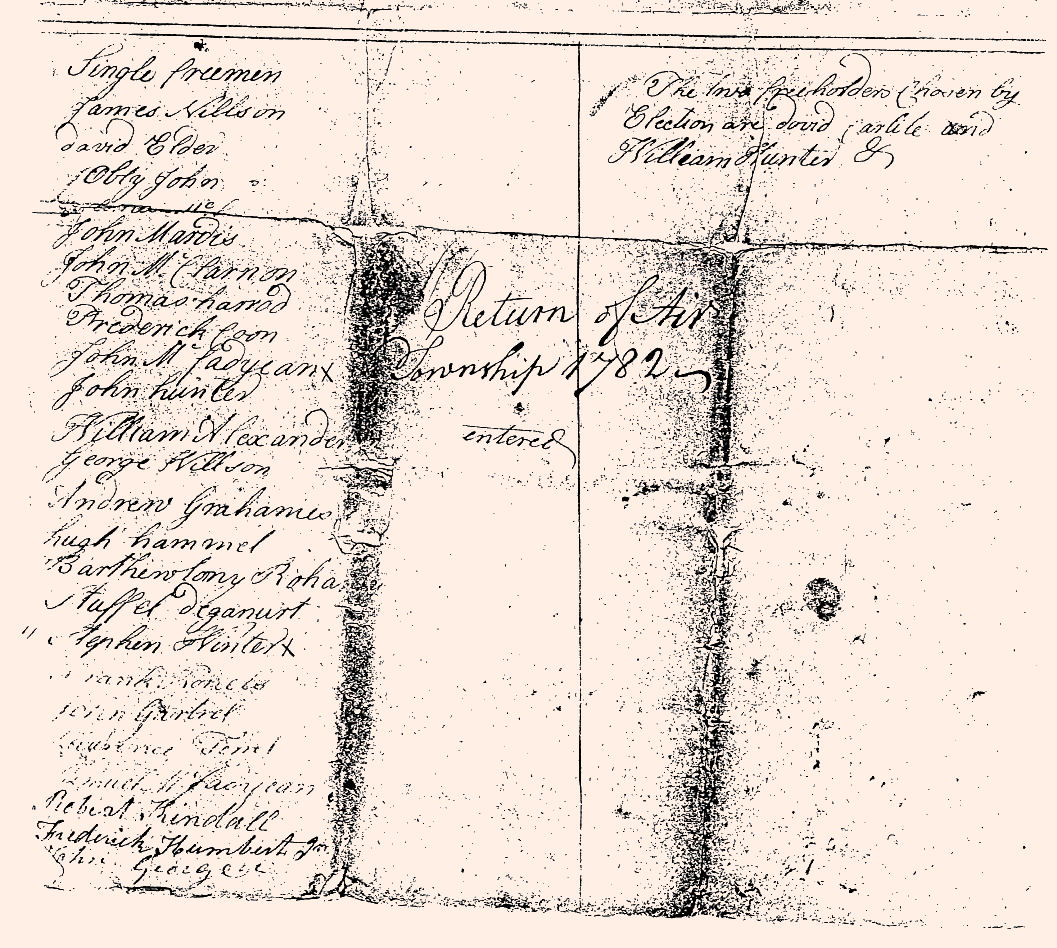 Single freemen
James Nillson
david Elder
Obly John
John Mardis
John Mc Clarnon
Thomas harrod
Frederick Coon
John Mc fadyean x
John hunter
William Alexander
George Willson
Andrew Grahames
hugh hammel
Barthewlomy Roha
Stuffel deganurt
" Stephen Winter x
frank
John Gartrel
Laurence
Samuel Mc fadyean
Robert Kindall
Frederick Humbert Jr
John George
Return of Air
Township 1782
entered
The two freeholders Chosen by
Election are david carlile and
William Hunter &